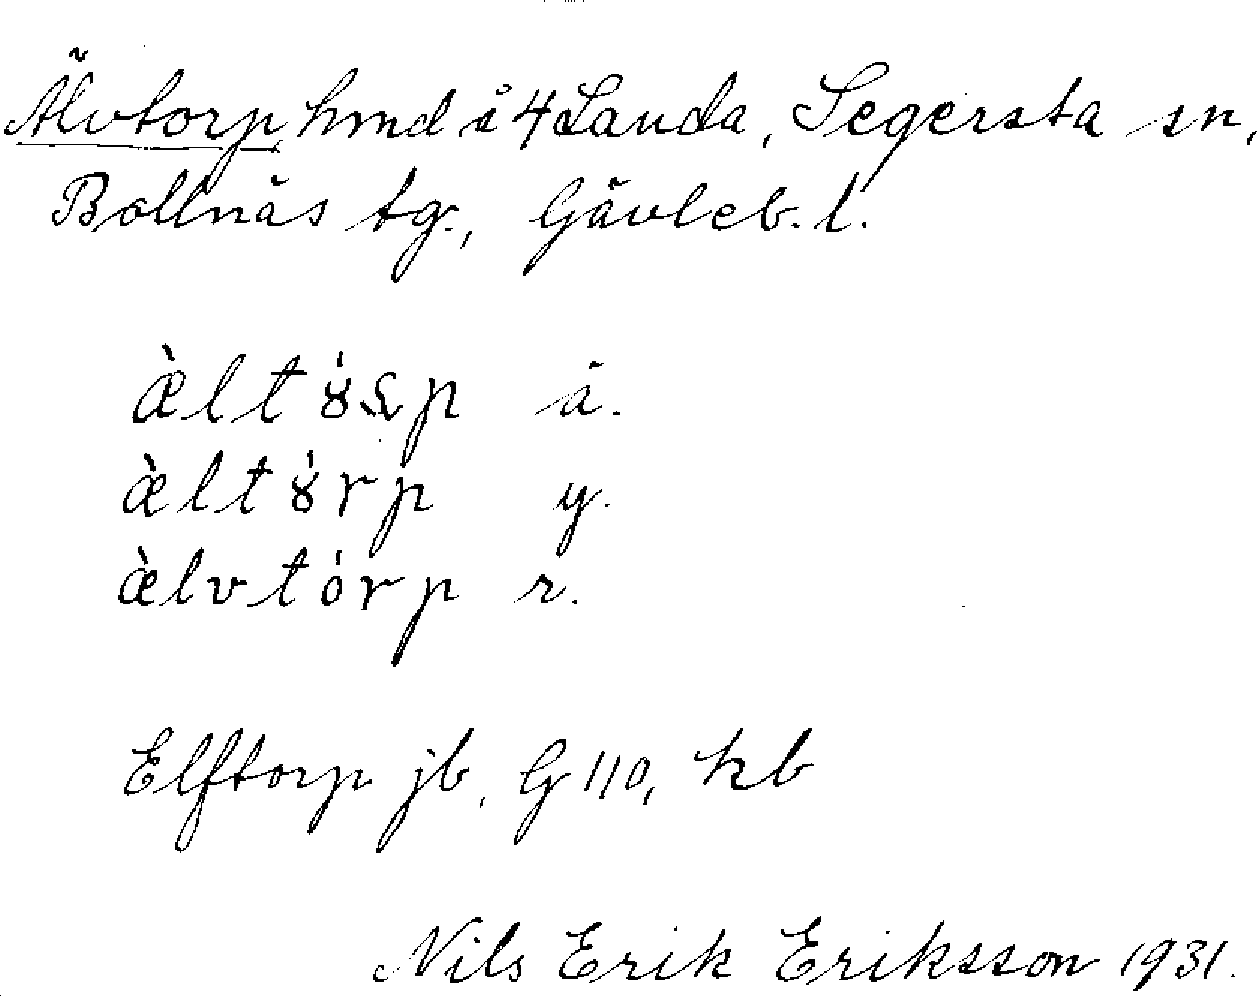 Älvtorp, hmd i 4 Landa, Segersta sn,
Bollnäs tg., Gävleb. l.
æ̀ltȣ́ꞎp ä.
æ̀ltȣ́rp y.
æ̀lvtórp r.
Elftorp jb, G 110, kb
Nils Erik Eriksson 1931.